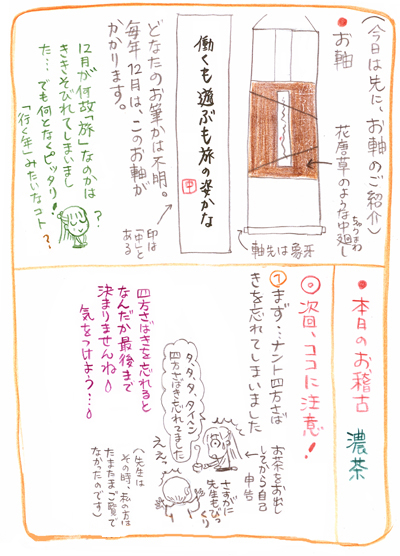 （今日は先に、お軸のご紹介）
● お軸
花唐草のような中廻し
ちゅうまわ
軸先は象牙
働くも遊ぶも旅の姿かな
中
印は
「中」と
ある
どなたのお筆かは不明。
毎年12月は、このお軸が
かかります。
12月が何故「旅」なのかは
ききそびれてしまいまし
た…でも何となくピッタリ！
「行く年」みたいなコト
??
?
● 本日のお稽古 濃茶
◎ 次回、ココに注意！
① まず…ナント四方さば
きを忘れてしまいました
お茶をお出し
してから自己
申告
タ、タ、タ、タイヘン
四方さばき忘れてました
さすがに
先生もびっ
くり
ええっ
（先生は
その時、私の方は
たまたまご覧で
なかったのです）
四方さばきを忘れると
なんだか最後まで
決まりませんね
気をつけよう…